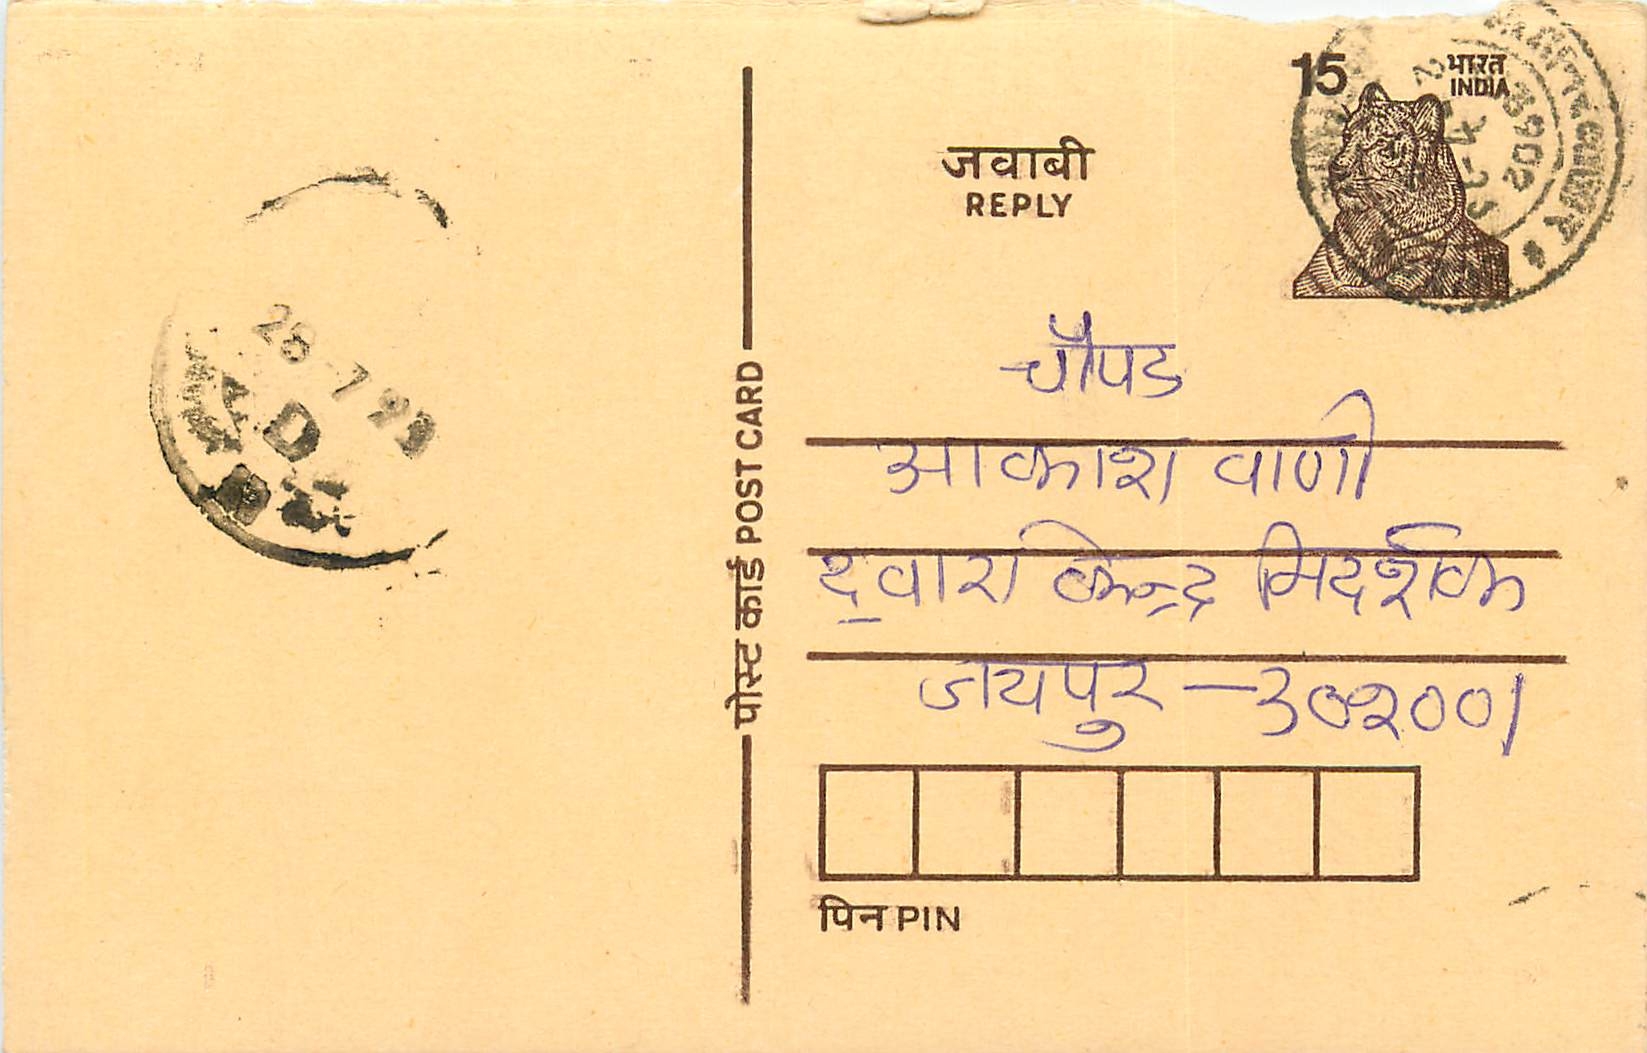 15 भारत
INDIA
जवाबी
REPLY
28 7 99
पोस्ट कार्ड POST CARD
चौपड
आकाश वाणी
द्वारा केन्द्र निदर्शक
जयपुर - 302001
पिन PIN